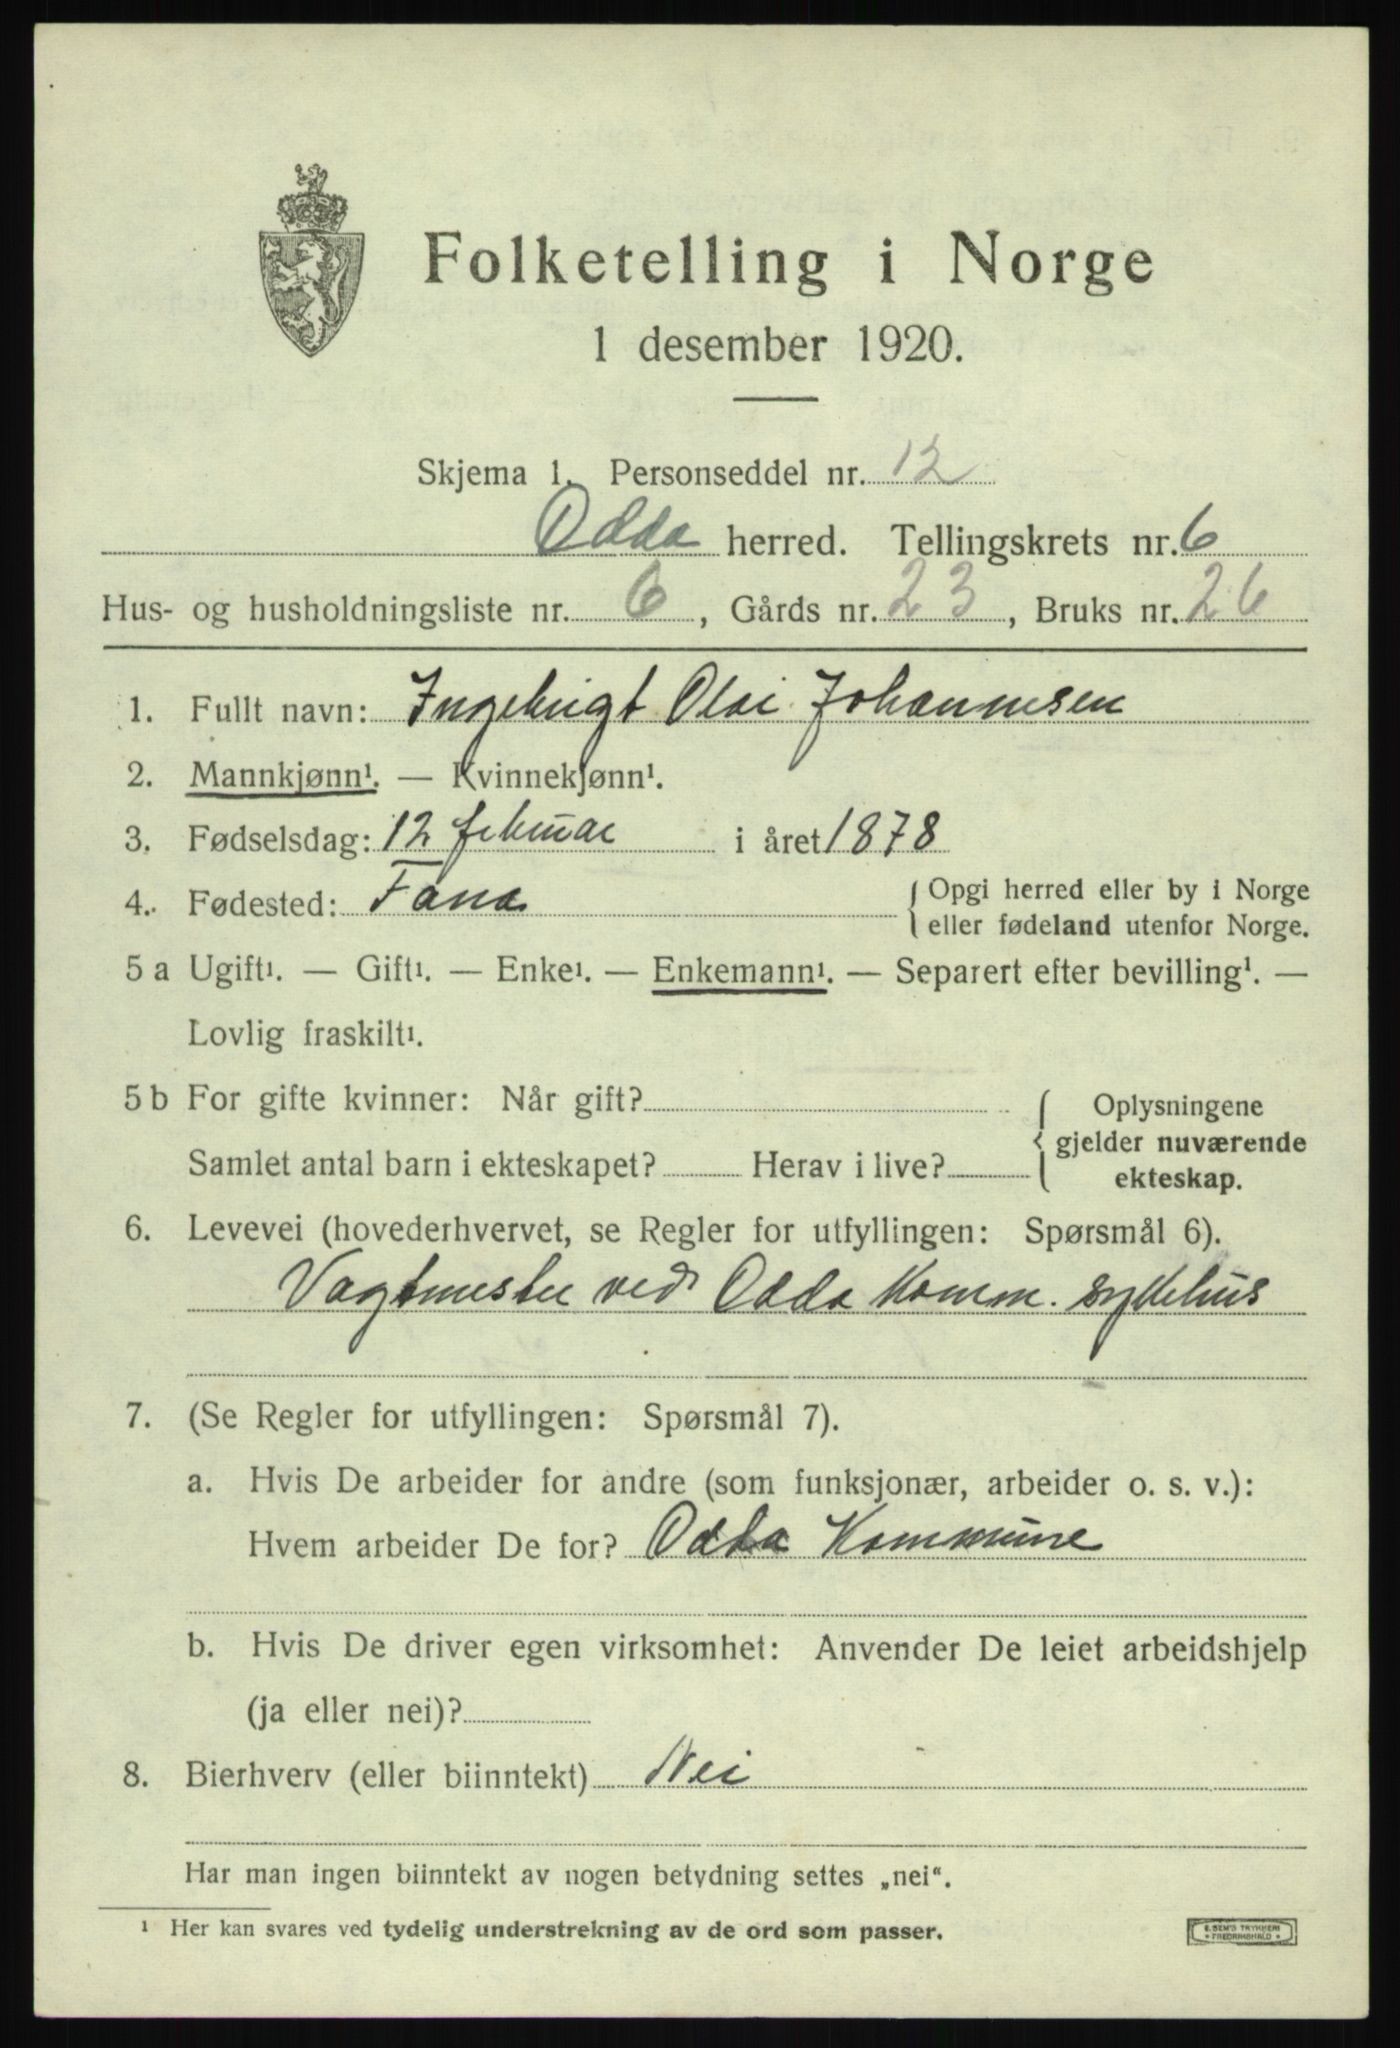 Folketelling i Norge
1 desember 1920.
Skjema 1. Personseddel nr. 12
Odda herred. Tellingskrets nr. 6
Hus- og husholdningsliste nr. 6, Gårds nr. 23, Bruks nr. 26
1. Fullt navn: Ingebrigt Olai Johannesen
2. Mannkjønn¹. — Kvinnekjønn¹.
3. Fødselsdag: 12 februar i året 1878
4. Fødested: Fana { Opgi herred eller by i Norge
eller fødeland utenfor Norge.
5 a Ugift¹. — Gift¹. — Enke¹. — Enkemann¹. — Separert efter bevilling¹. —
Lovlig fraskilt¹.
5 b For gifte kvinner: Når gift? { Oplysningene
gjelder nuværende
Samlet antal barn i ekteskapet? Herav i live? ekteskap.
6. Levevei (hovederhvervet, se Regler for utfyllingen: Spørsmål 6).
Vagtmester ved Odda Komm. sykehus
7. (Se Regler for utfyllingen: Spørsmål 7).
a. Hvis De arbeider for andre (som funksjonær, arbeider o. s. v.):
Hvem arbeider De for? Odda Kommune
b. Hvis De driver egen virksomhet: Anvender De leiet arbeidshjelp
(ja eller nei)?
8. Bierhverv (eller biinntekt) Nei
Har man ingen biinntekt av nogen betydning settes „nei“.
¹ Her kan svares ved tydelig understrekning av de ord som passer.
E. SEM'S TRYKKERI
FREDRIKSHALD